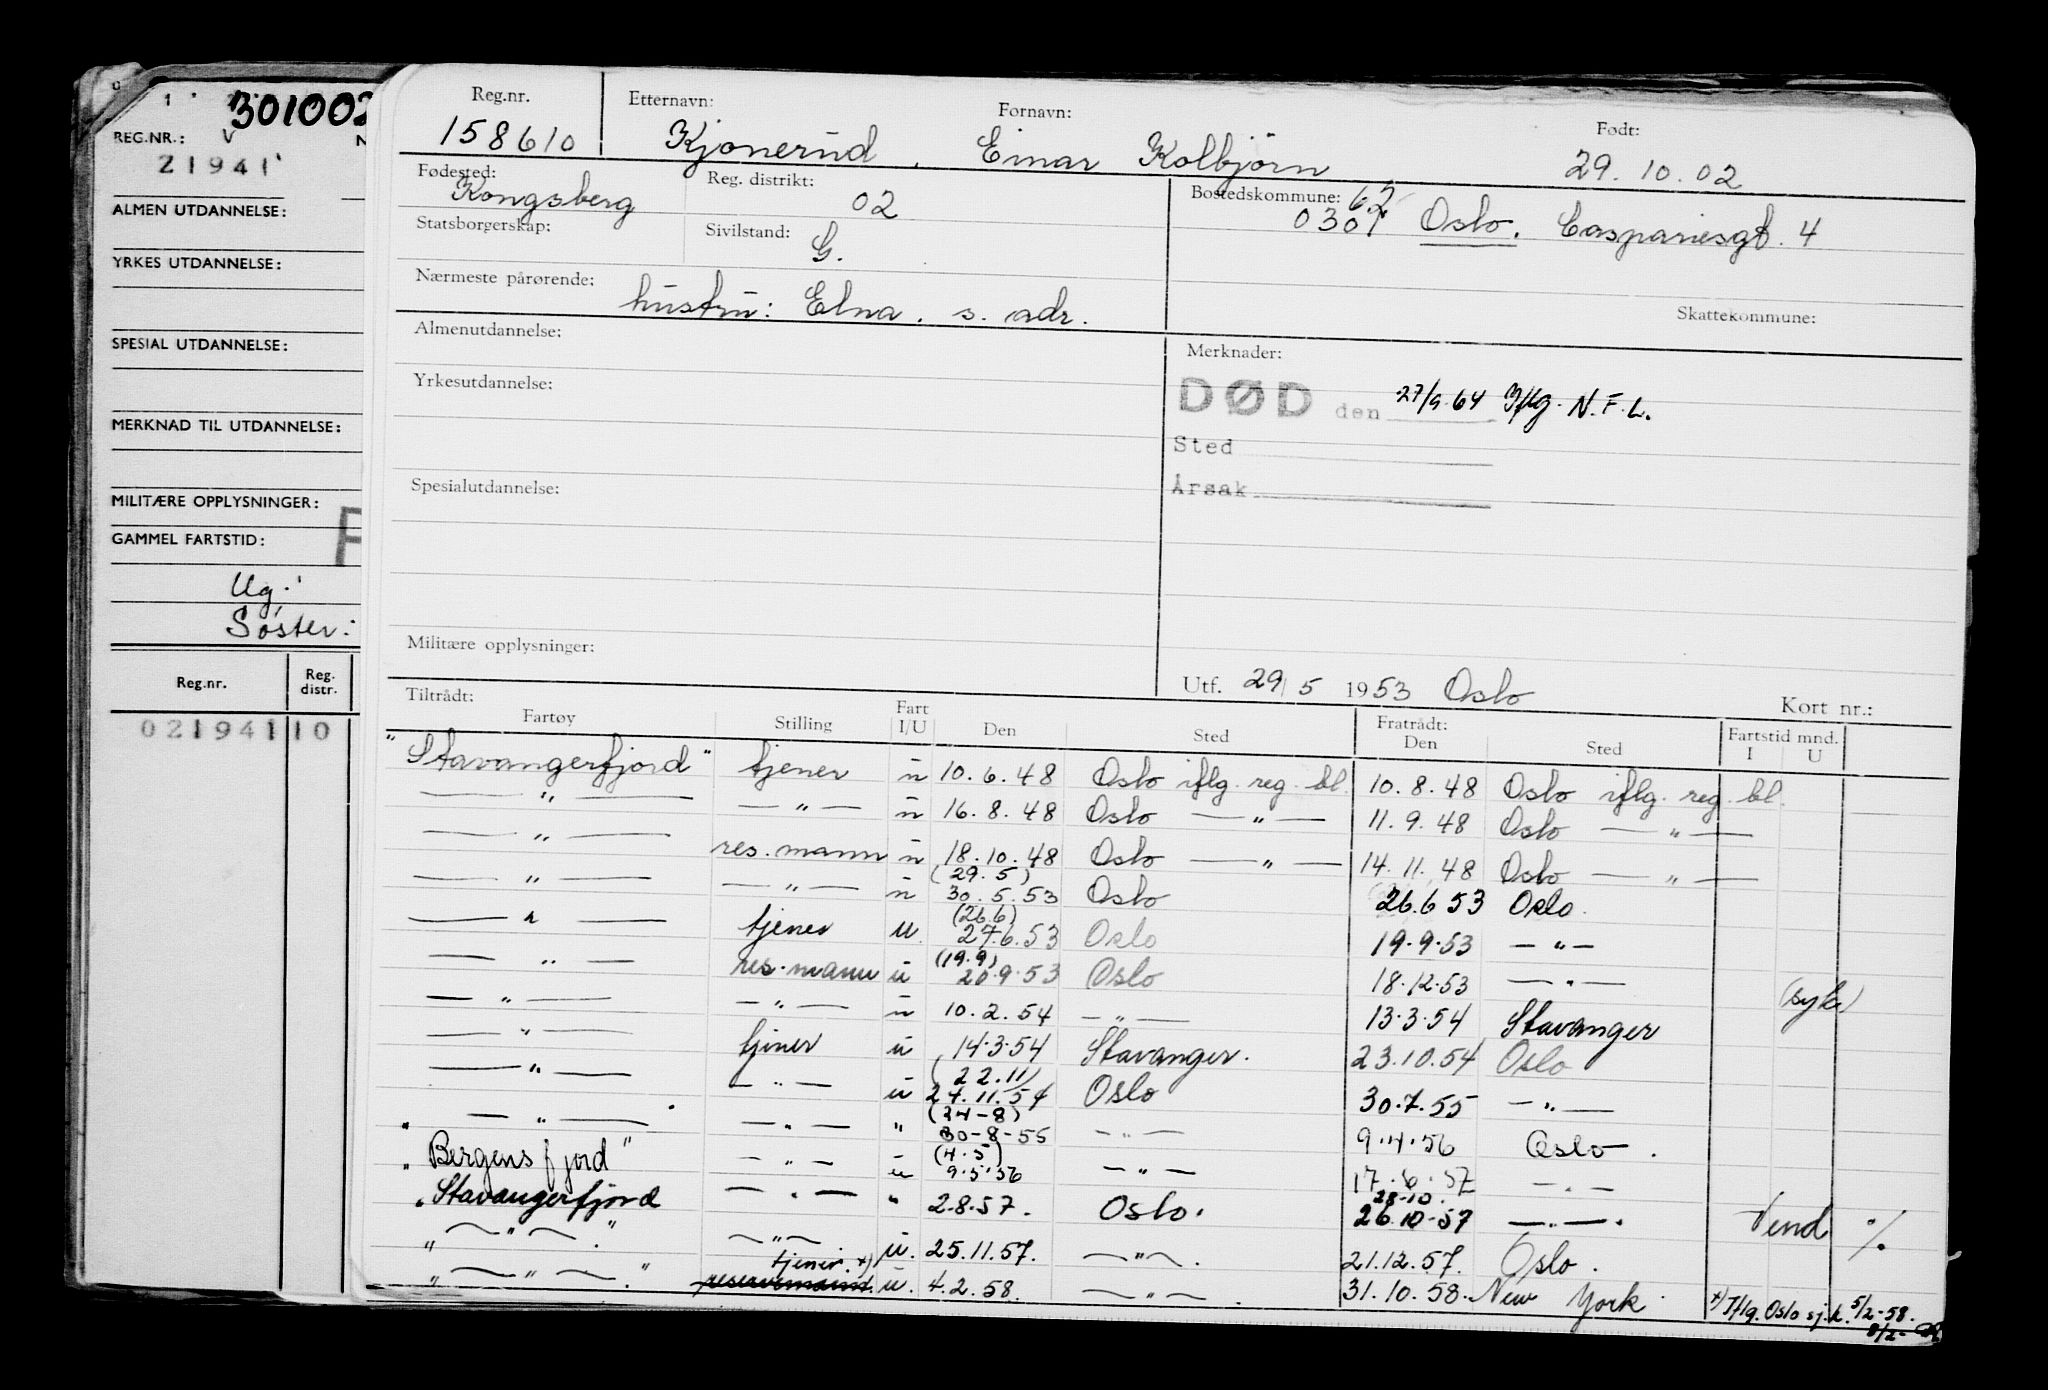 301002
REG.NR.: V N
21941
ALMEN UTDANNELSE:
YRKES UTDANNELSE:
SPESIAL UTDANNELSE:
MERKNAD TIL UTDANNELSE:
MILITÆRE OPPLYSNINGER:
GAMMEL FARTSTID:
Ug:
Søster:
Reg.nr. Reg. distr.
021941 10
Reg.nr. Etternavn: Fornavn: Født:
158610 Kjonerud, Einar Kolbjørn 29.10.02
Fødested: Kongsberg Reg. distrikt: 02 Bostedskommune: 62
0301 Oslo. Caspariesgt. 4
Statsborgerskap: Sivilstand: G.
Nærmeste pårørende: hustru: Elna. s. adr.
Skattekommune:
Almenutdannelse: Merknader:
DØD den 27/9.64 Iflg. N.F.L.
Yrkesutdannelse:
Sted
Årsak
Spesialutdannelse:
Militære opplysninger:
Utf. 29/5 1953 Oslo
Tiltrådt: Fratrådt: Kort nr.:
Fartøy Stilling Fart I/U Den Sted Den Sted Fartstid mnd. I U
"Stavangerfjord" tjener u 10.6.48 Oslo iflg. reg. bl. 10.8.48 Oslo iflg. reg. bl.
— " — — " — u 16.8.48 Oslo — " — 11.9.48 Oslo — " —
— " — res. mann u 18.10.48 Oslo — " — 14.11.48 Oslo — " —
— " — — " — u (29.5) 30.5.53 Oslo 26.6 53 Oslo.
— " — tjener u. (26.6) 27.6.53 Oslo 19.9.53 — " —
— " — res. mann u (19.9) 20.9.53 Oslo 18.12.53 — " —
— " — — " — u 10.2.54 — " — 13.3.54 Stavanger (syk)
— " — tjener u 14.3.54 Stavanger. 23.10.54 Oslo
— " — — " — u (22.11) 24.11.54 Oslo 30.7.55 — " —
— " — — " — " (24-8) 30-8-55 — " — 9.4.56 Oslo.
"Bergensfjord" — " — u (4.5) 9.5.56 — " — 17.6.57 — " —
"Stavangerfjord — " — " 2.8.57. Oslo. 28-10. 26.10-57 — " — Vend %
" — " — " — " — u. 25.11.57. — " —. 21.12.57. Oslo.
" — " — " tjener. x) reservemann. u. 4.2.58. — " —. 31.10.58. New York
x) Iflg. Oslo sj.k. 5/2-58.
8/2-